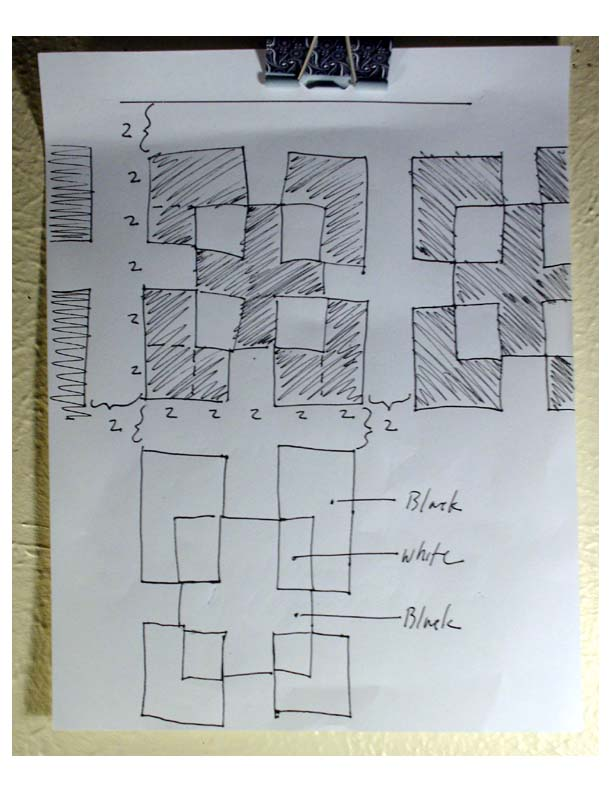 2
2
2
2
2
2
2 2 2 2 2
2 2
Black
White
Black